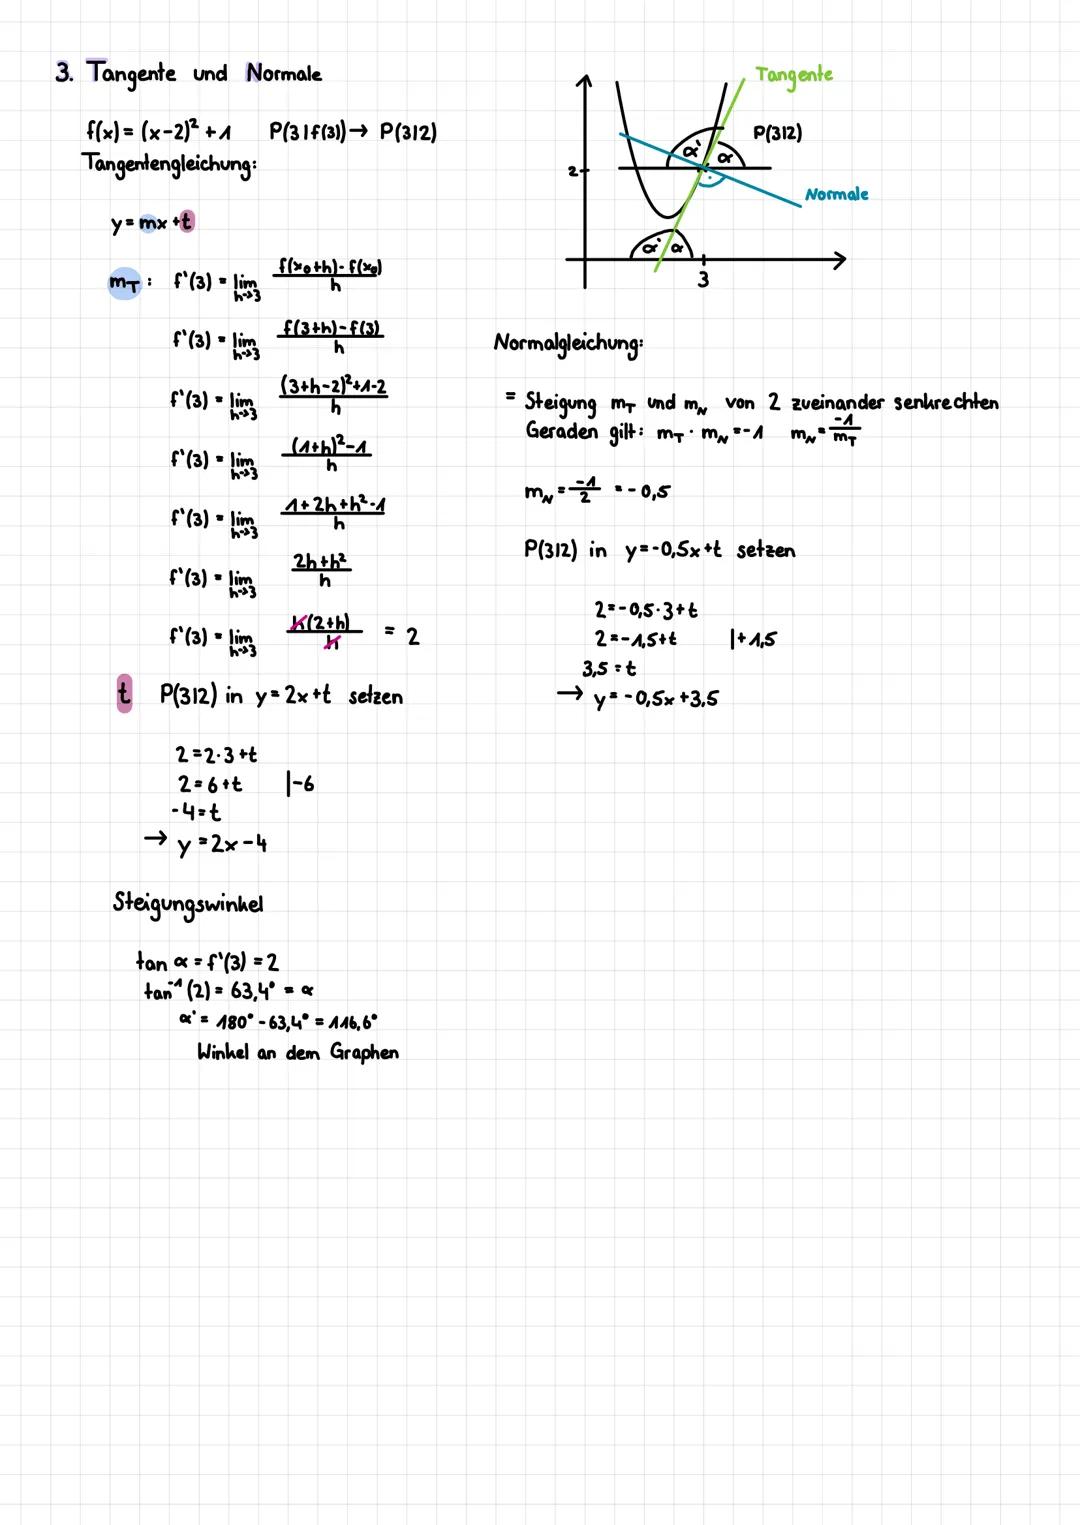 3. Tangente und Normale
f(x) = (x-2)² + 1 P(3|f(3)) → P(3|2)
Tangentengleichung:
y = mx + t
m_T : f'(3) = lim h→3 f(x₀+h)-f(x₀) / h
f'(3) = lim h→3 f(3+h)-f(3) / h
f'(3) = lim h→3 (3+h-2)²+1-2 / h
f'(3) = lim h→3 (1+h)²-1 / h
f'(3) = lim h→3 1+2h+h²-1 / h
f'(3) = lim h→3 2h+h² / h
f'(3) = lim h→3 h(2+h) / h = 2
t P(3|2) in y=2x+t setzen
2 = 2·3+t
2 = 6+t |-6
-4 = t
→ y = 2x-4
Steigungswinkel
tan α = f'(3) = 2
tan⁻¹ (2) = 63,4° = α
α' = 180° - 63,4° = 116,6°
Winkel an dem Graphen
Tangente
P(3|2)
α' α
2
Normale
α' α
3
Normalgleichung:
= Steigung m_T und m_N von 2 zueinander senkrechten
Geraden gilt: m_T · m_N = -1 m_N = -1 / m_T
m_N = -1 / 2 = -0,5
P(3|2) in y=-0,5x+t setzen
2 = -0,5·3+t
2 = -1,5+t |+1,5
3,5 = t
→ y = -0,5x+3,5